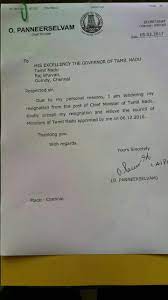 O. PANNEERSELVAM
Chief Minister
SECRETARIAT
05.02.2017
To
HIS EXCELLENCY THE GOVERNOR OF TAMIL NADU
Tamil Nadu
Raj Bhavan,
Guindy, Chennai
Respected sir,
Due to my personal reasons, I am tendering my
resignation from the post of Chief Minister of Tamil Nadu.
Kindly accept my resignation and relieve the council of
Ministers of Tamil Nadu appointed by me on 06.12.2016.
Thanking you
With regards,
Yours Sincerely
(O. PANNEERSELVAM)
Place: Chennai